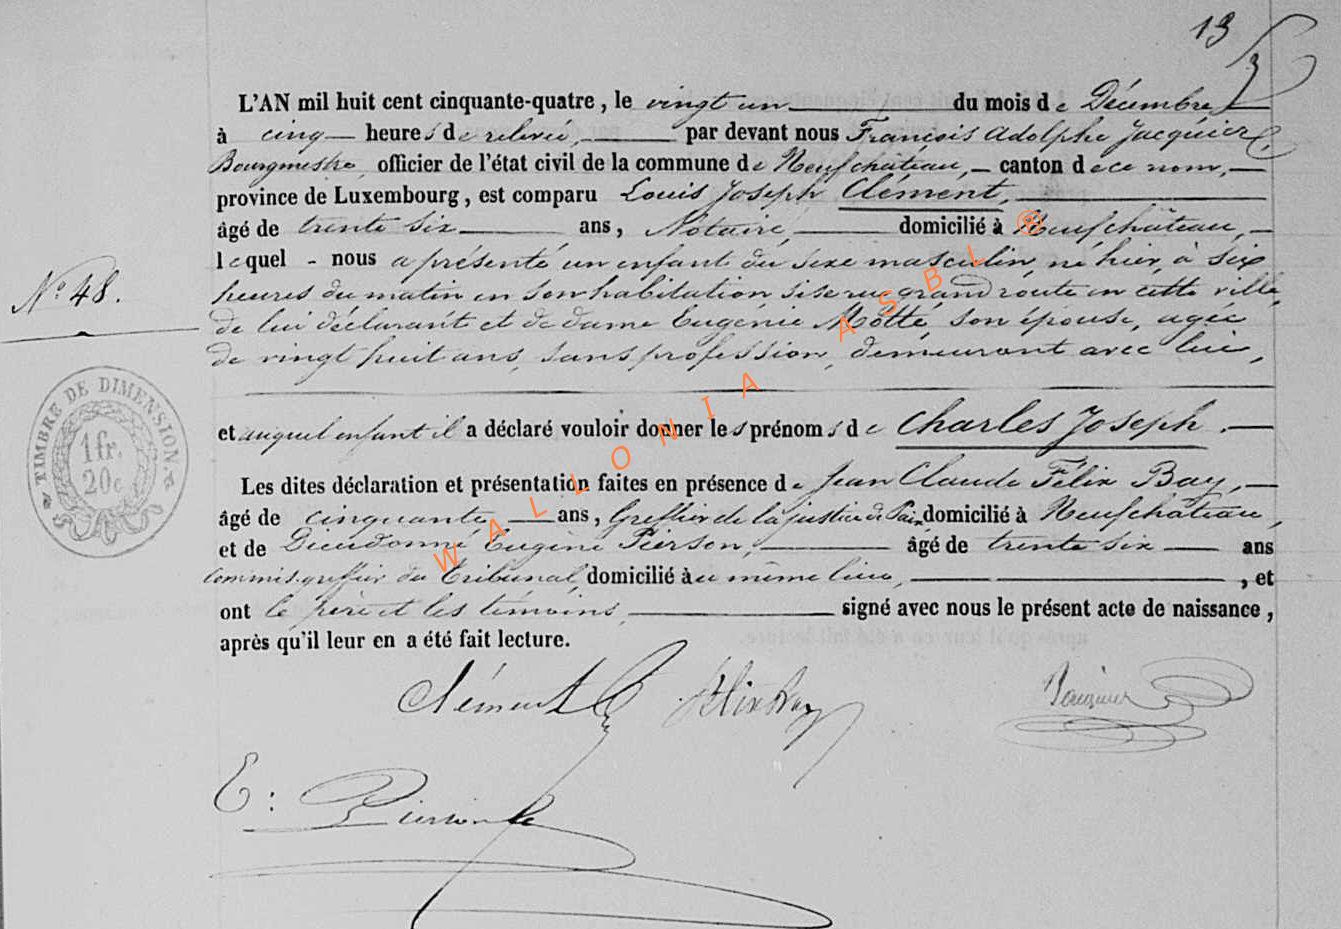 13
L'AN mil huit cent cinquante-quatre, le vingt un du mois de Décembre
à cinq heures de relevée, par devant nous François Adolphe Jacquier,
Bourgmestre, officier de l'état civil de la commune de Neufchâteau, canton de ce nom,
province de Luxembourg, est comparu Louis Joseph Clément,
âgé de trente six ans, Notaire, domicilié à Neufchâteau,
lequel - nous a présenté un enfant du sexe masculin, né hier, à six
N° 48.
heures du matin en son habitation sise rue grand route en cette ville,
de lui déclarant et de dame Eugénie Motté, son épouse, agée
de vingt huit ans, sans profession, demeurant avec lui,
et auquel enfant il a déclaré vouloir donner les prénoms de Charles Joseph.
Les dites déclaration et présentation faites en présence de Jean Claude Félix Bay,
âgé de cinquante ans, Greffier de la justice de Paix domicilié à Neufchâteau,
et de Dieudonné Eugène Pierson, âgé de trente six ans
commis greffier du Tribunal, domicilié à au même lieu, , et
ont le père et les témoins, signé avec nous le présent acte de naissance,
après qu'il leur en a été fait lecture.
TIMBRE DE DIMENSION.
1 fr.
20 c
Clément
Félix Bay
Jacquier
E: Pierson
WALLONIA ASBL ®